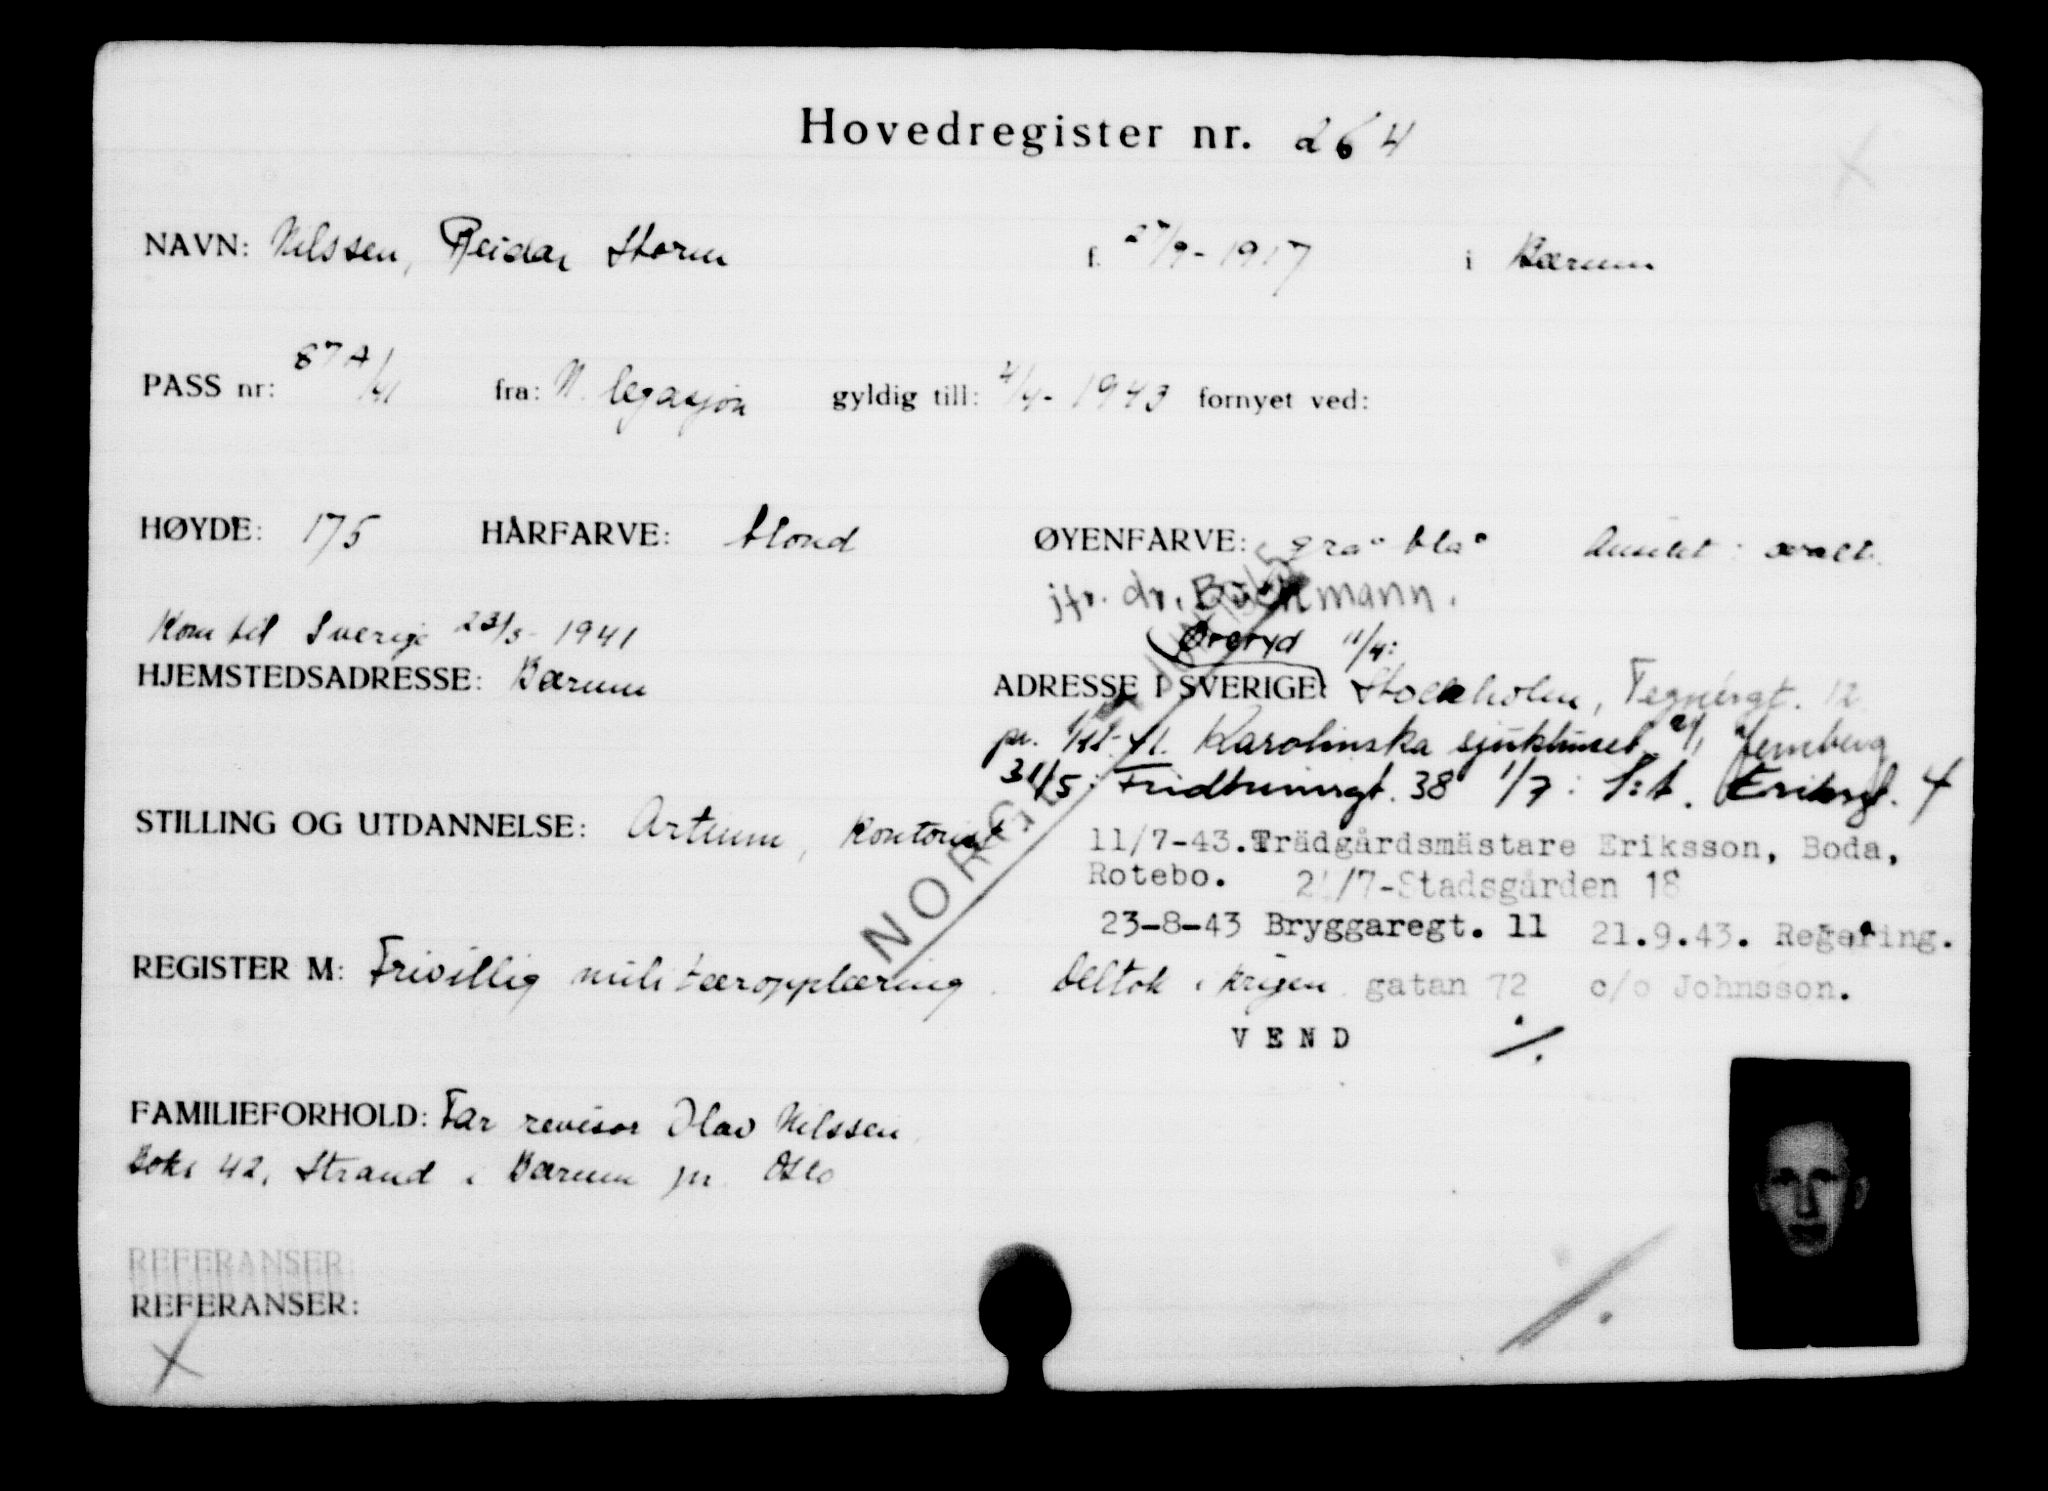 Hovedregister nr. 264
NAVN: Nilssen, Reidar Storm f. 27/9-1917 i Bærum
PASS nr: 87A/41 fra: N. legasjon gyldig till: 4/4-1943 fornyet ved:
HØYDE: 175 HÅRFARVE: blond ØYENFARVE: grå blå Ansikt: ovalt.
jfr. dr. mann.
Kom til Sverige 23/3-1941 Øreryd 11/4:
HJEMSTEDSADRESSE: Bærum ADRESSE I SVERIGE: Stockholm, Tegnérgt. 12
pr. Karolinska sjukhuset
31/5: Fridhemsgt. 38 1/7: S:t. Eriksgt. 4
STILLING OG UTDANNELSE: Artium, Kontorist 11/7-43. Trädgårdsmästare Eriksson, Boda,
Rotebo. /7-Stadsgården 18
NORGE
23-8-43 Bryggaregt. 11 21.9.43. Regering.
REGISTER M: Frivillig militæropplæring. Deltok i krigen. gatan 72 c/o Johnsson.
VEND ./.
FAMILIEFORHOLD: Far revisor Olav Nilssen,
Boks 42, Strand i Bærum pr. Oslo
REFERANSER:
REFERANSER: